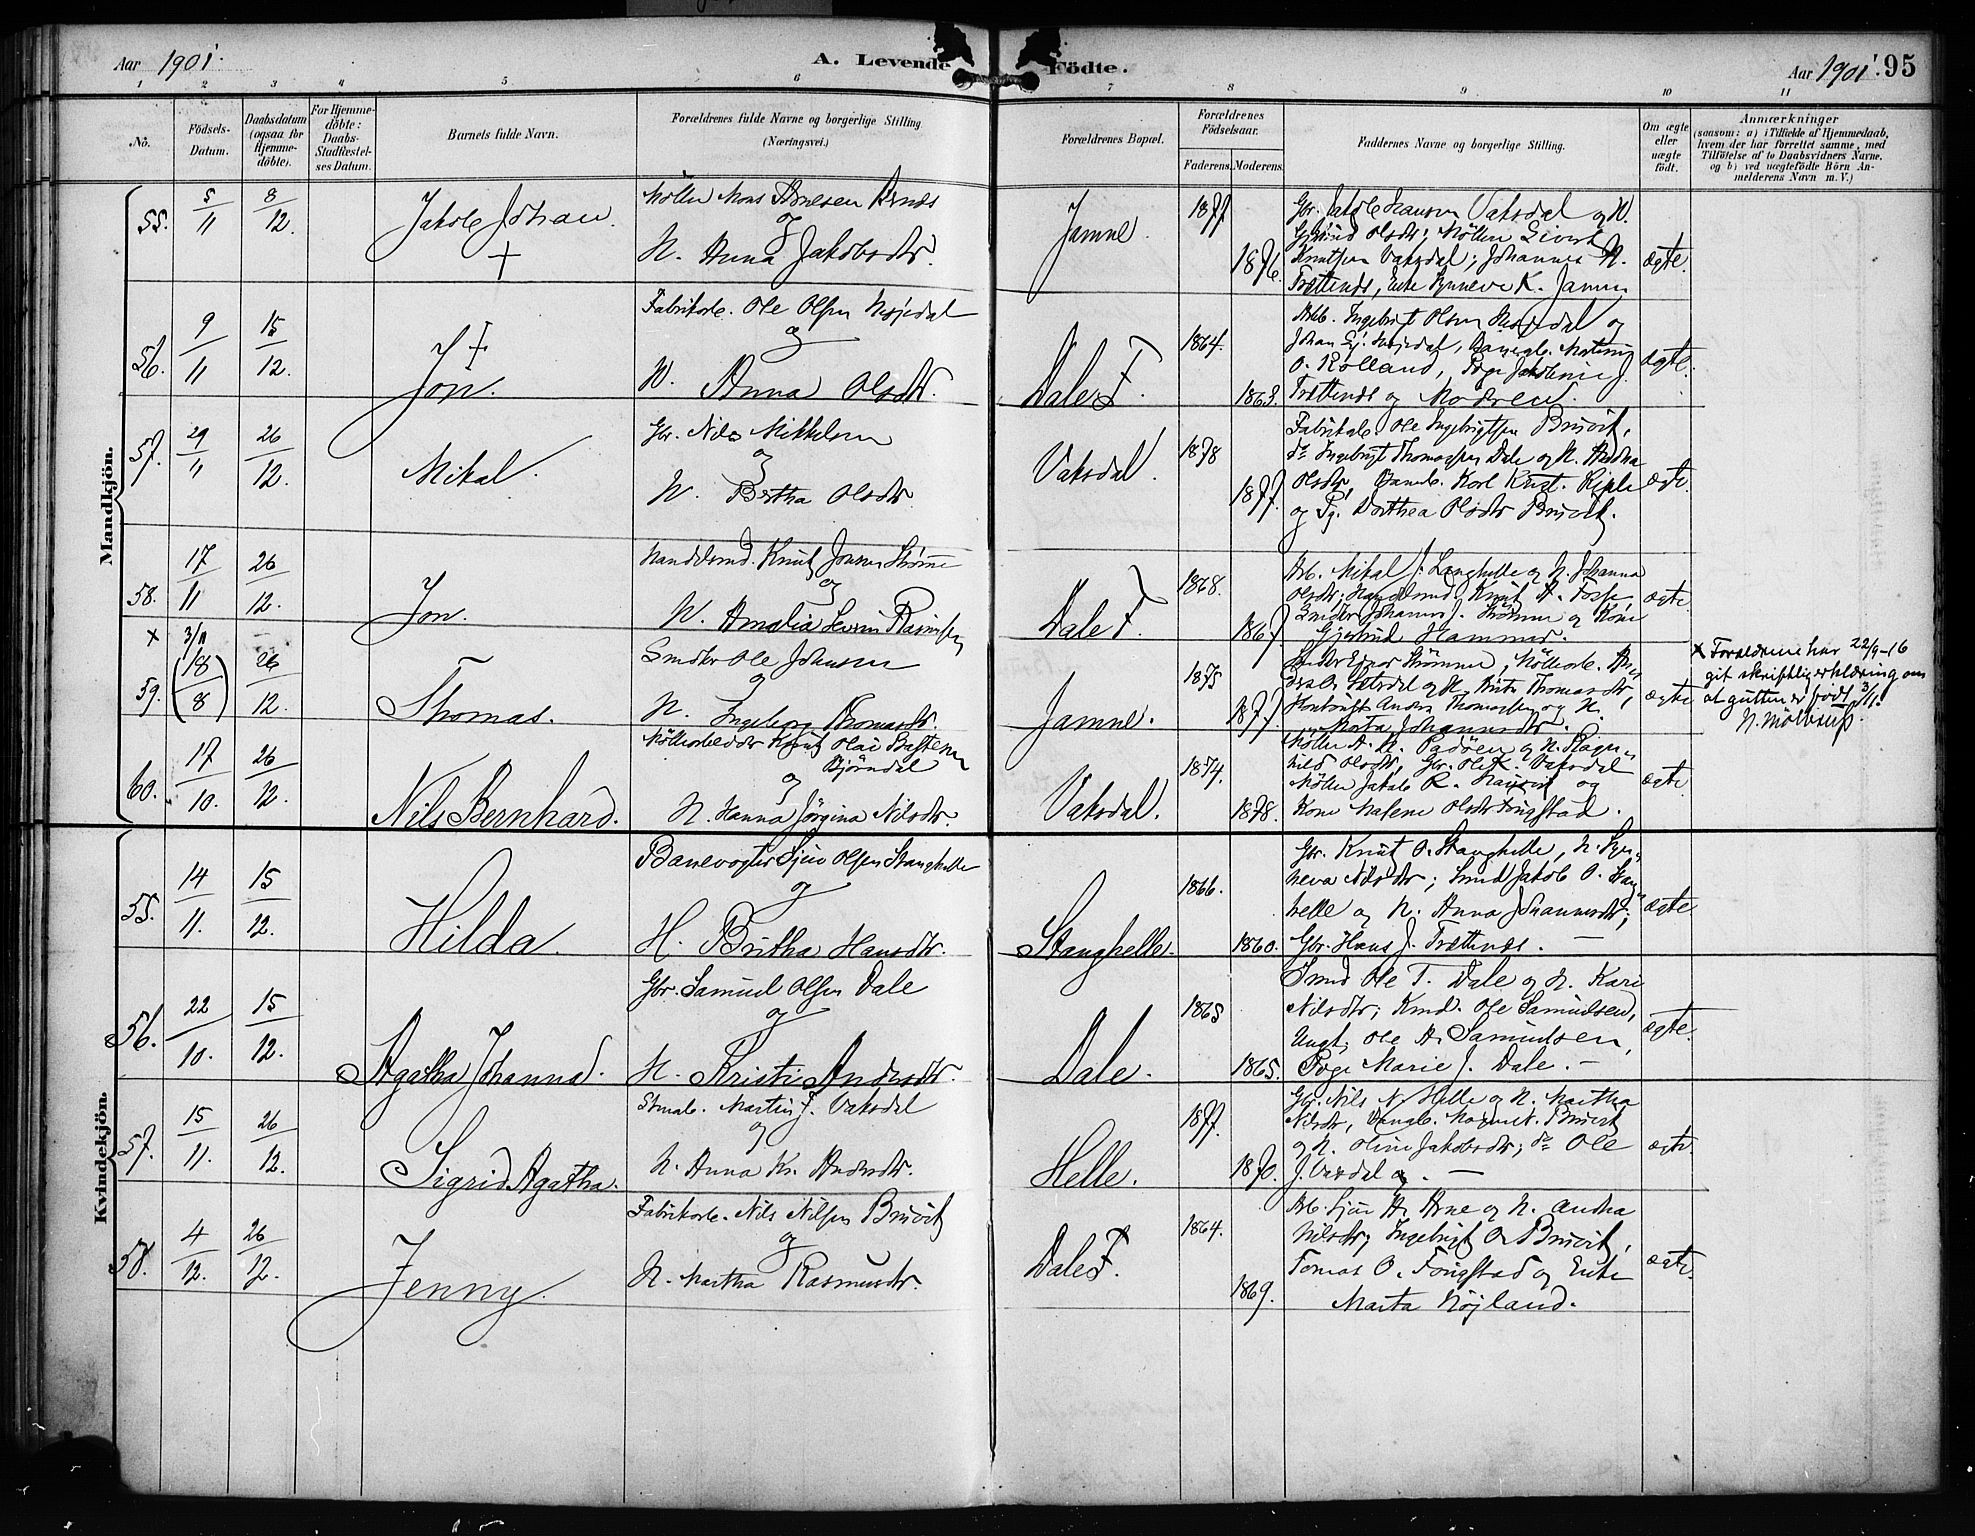 Aar 1901.
A. Levende Födte.
Aar 1901. 95
1 2 3 4 5 6 7 8 9 10 11
No.
Födsels-Datum.
Daabsdatum (ogsaa for Hjemme-döbte).
For Hjemme-döbte: Daabs-Stadfæstel-ses Datum.
Barnets fulde Navn.
Forældrenes fulde Navne og borgerlige Stilling (Næringsvei.)
Forældrenes Bopæl.
Forældrenes Födselsaar.
Faderens. Moderens.
Faddernes Navne og borgerlige Stilling.
Om ægte eller uægte födt.
Anmærkninger
(saasom: a) i Tilfælde af Hjemmedaab,
hvem der har forrettet samme, med
Tilföielse af to Daabsvidners Navne,
og b) ved uægtefödte Börn An-
melderens Navn m. V.)
Mandkjön.
55. 5/11 8/12. Jakob Johan +
Möller Mons Arnesen
og
H. Anna Jakobsdtr.
Jamne. 1877 1876.
Gbr. Jakob Hansen Vaksdal og H.
Olsdtr; Möller Sivert
Knutsen Vaksdal; Johannes
Trættenes, Enke K. Jamne
ægte.
56. 9/11 15/12. Jon. +
Fabrikarb. Ole Olsen
og
H. Anna Olsdtr.
Dale F. 1864. 1863.
Arb. Ingebrigt Olsen og
Johan
O. Rolland, Pige J.
Trættenes og Moderen.
ægte.
57. 29/11 26/12. Mikal.
Gbr. Nils Mikkelsen
og
H. Bertha Olsdtr.
Vaksdal. 1878 1877.
Fabrikarb. Ole Ingebrigtsen Bruvik,
do Ingebrigt Thomassen Dale og H.
Olsdtr, Karl Krist.
og Pg. Dorthea Olsdtr Bruvik.
ægte.
58. 17/11 26/12. Jon.
Handelsmd. Knut Jonsen Strømme
og
H. Amalia Rasmussen
Dale F. 1868. 1867.
Arb. Mikal J. Langhelle og H. Johanna
Olsdtr; Handelsmd. Knut A. Fosse
Snedker Johannes J. Strømme og Kone
Gjertrud Hammer.
ægte.
× 3/11
59. (18/8) 26/12. Thomas.
Snedker Ole Johansen
og
H. Ingeborg Thomasdtr.
Jamne. 1875 1877.
Snedker Strömme, Möllearb.
og H. Brita Thomasdtr,
Anders Thomassen og H.
Marta Johannesdtr.
ægte
× Forældrene har 22/9-16
git skriftlig erklæring om
at gutten er född 3/11.
60. 17/10. 26/12. Nils Bernhard.
Möllearbeider Knut Olai Bastesen
Björndal
og
H. Hanna Jörgina Nilsdtr.
Vaksdal. 1874. 1878.
Möller og H. Ragn-
hild Olsdtr, Gbr. Ole K. Vaksdal
Möller Jakob R. og
Kone Malene Olsdtr
ægte
Kvindekjön.
55. 14/11. 15/12. Hilda.
Banevogter Sjur Olsen Stanghelle
og
H. Britha Hansdtr.
Stanghelle. 1866. 1860.
Gbr. Knut O. Stanghelle, H. Syn-
neva Nilsdtr; Smed Jakob O. Stang-
helle og H. Anna Johannesdtr;
Gbr. Hans J. Trættenes. —
ægte
56. 22/10. 15/12. Agatha Johanna.
Gbr. Samuel Olsen Dale
og
H. Kristi Andersdtr.
Dale. 1865 1865.
Smed Ole T. Dale og H. Kari
Nilsdtr; Kmd. Ole Samuelsen,
Ungk. Ole A. Samuelsen,
Pige Marie J. Dale. —
ægte.
57. 15/11. 26/12. Sigrid Agatha.
Martin J. Vaksdal
og
H. Anna Kr. Andersdtr.
Helle. 1877. 1870.
Gbr. Nils N. Helle og H. Martha
Nilsdtr, Bruvik
og H. Oline Jakobsdtr; do Ole
J. Vaksdal og. —
ægte
58. 4/12. 26/12. Jenny.
Fabrikarb. Nils Nilsen Bruvik
og
H. Martha Rasmusdtr.
Dale F. 1864. 1869.
Arb. Sjur A. Arne og H. Andrea
Nilsdtr, Ingebrigt O. Bruvik,
Tomas O. og Enke
Marta Höjland.
ægte.